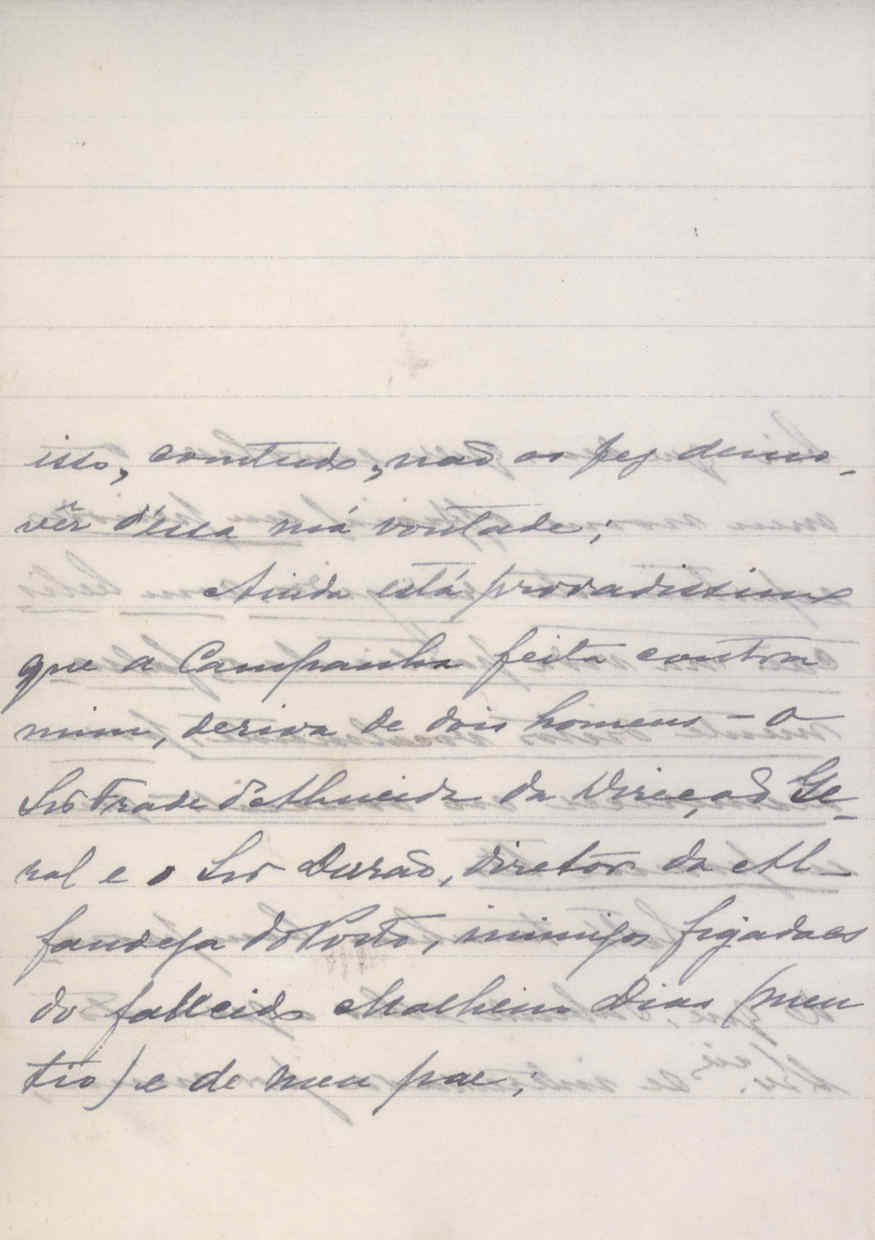 isso, comtudo, não os fez demo-
vêr d'essa má vontade;
Ainda está provadissimo
que a Campanha feita contra
mim, deriva de dois homens - O
Snr Frade d'Almeida da Direcção Ge-
ral e o Snr Durão, diretor da Al-
fandega do Porto, inimigos figadaes
do fallecido Malheiro Dias (meu
tio) e de meu pae;